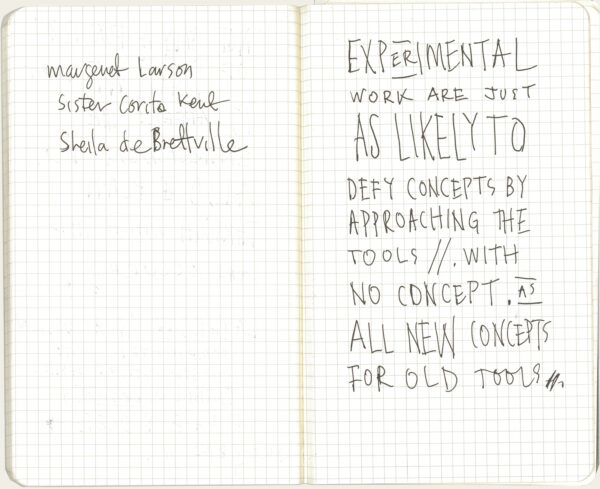 margeret Larson
Sister Corita Kent
Sheila de Brettville
EXPERIMENTAL
WORK ARE JUST
AS LIKELY TO
DEFY CONCEPTS BY
APPROACHING THE
TOOLS //. WITH
NO CONCEPT. AS
ALL NEW CONCEPTS
FOR OLD TOOLS //.